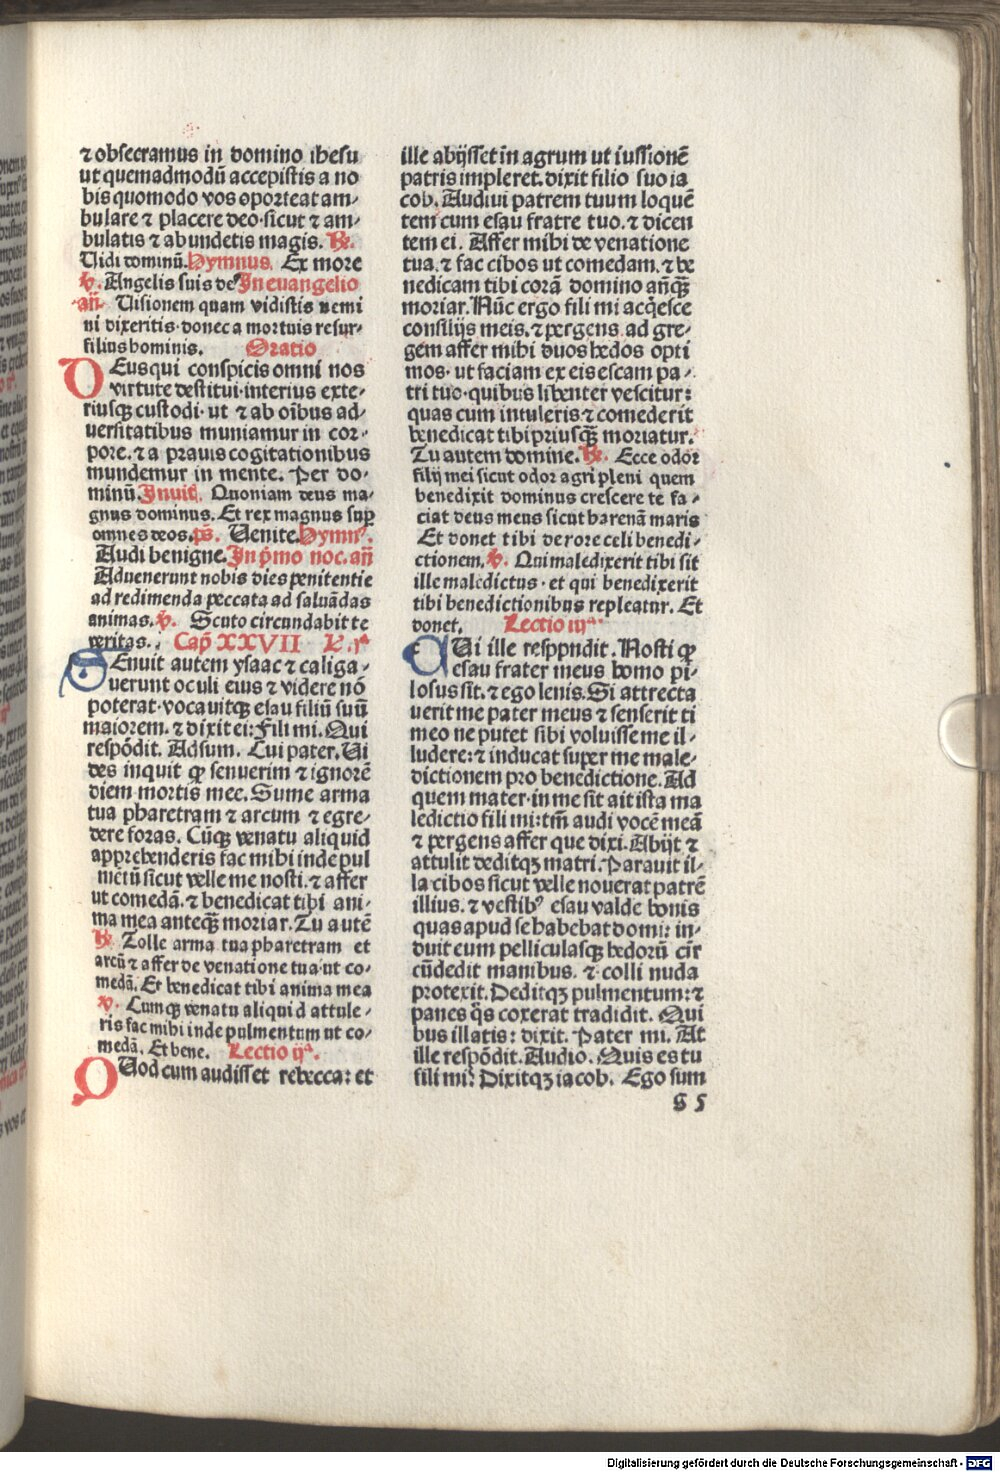 ⁊ obsecramus in domino ihesu
ut quemadmodū accepistis a no
bis quomodo vos oporteat am⸗
bulare ⁊ placere deo·sicut ⁊ am⸗
bulatis ⁊ abundetis magis. ℟.
Uidi dominū. Hymnus. Ex more
℣. Angelis suis deꝰ In euangelio
añ. Uisionem quam vidistis nemi
ni dixeritis·donec a mortuis resur⸗
filius hominis. Oratio
DEus qui conspicis omni nos
virtute destitui·interius exte⸗
riusqꝫ custodi·ut ⁊ ab oībus ad⸗
uersitatibus muniamur in cor⸗
pore.⁊ a prauis cogitationibus
mundemur in mente. Per do⸗
minū. Inuit. Quoniam deus ma⸗
gnus dominus. Et rex magnus suꝑ
omnes deos. ps̄. Uenite. Hymnꝰ.
Audi benigne. In pͥmo noc. añ
Aduenerunt nobis dies penitentie
ad redimenda peccata ad saluādas
animas. ℣. Scuto circundabit te
veritas. Cap̄ XXVII L. jᵃ
SEnuit autem ysaac ⁊ caliga⸗
uerunt oculi eius ⁊ videre nō
poterat·vocauitqꝫ esau filiū suū
maiorem.⁊ dixit ei: Fili mi. Qui
respōdit. Adsum. Cui pater. Ui
des inquit ꝙ senuerim ⁊ ignorē
diem mortis mee. Sume arma
tua pharetram ⁊ arcum ⁊ egre⸗
dere foras. Cūqꝫ venatu aliquid
apprehenderis fac mihi inde pul
metū sicut velle me nosti.⁊ affer
ut comedā.⁊ benedicat tibi ani⸗
ma mea anteqꝫ̄ moriar. Tu autē
℟. Tolle arma tua pharetram et
arcū ⁊ affer de venatione tua·ut co⸗
medā. Et benedicat tibi anima mea
℣. Cumqꝫ venatu aliquid attule⸗
ris fac mihi inde pulmentum ut co⸗
medā. Et bene. Lectio ijᵃ.
QUod cum audisset rebecca: et
ille abijsset in agrum ut iussionē
patris impleret. dixit filio suo ia
cob. Audiui patrem tuum loquē
tem cum esau fratre tuo.⁊ dicen
tem ei. Affer mihi de venatione
tua.⁊ fac cibos ut comedam.⁊ be
nedicam tibi corā domino anqꝫ̄
moriar. Nūc ergo fili mi acq̄esce
consilijs meis.⁊ pergens ad gre⸗
gem affer mihi duos hedos opti
mos·ut faciam ex eis escam pa⸗
tri tuo·quibus libenter vescitur:
quas cum intuleris ⁊ comederit
benedicat tibi priusqꝫ̄ moriatur.
Tu autem domine. ℟. Ecce odor
filij mei sicut odor agri pleni quem
benedixit dominus crescere te fa⸗
ciat deus meus sicut harenā maris
Et donet tibi de rore celi benedi⸗
ctionem. ℣. Qui maledixerit tibi sit
ille maledictus·et qui benedixerit
tibi benedictionibus repleatur. Et
donet. Lectio iijᵃ.
CUi ille resppndit. Nosti ꝙ
esau frater meus homo pi⸗
losus sit.⁊ ego lenis. Si attrecta
uerit me pater meus ⁊ senserit ti
meo ne putet sibi voluisse me il⸗
ludere:⁊ inducat super me male⸗
dictionem pro benedictione. Ad
quem mater·in me sit ait ista ma
ledictio fili mi:tm̄ audi vocē meā
⁊ pergens affer que dixi. Abijt ⁊
attulit deditqꝫ matri. Parauit il⸗
la cibos sicut velle nouerat patrē
illius.⁊ vestibꝰ esau valde bonis
quas apud se habebat domi: in⸗
duit eum pelliculasqꝫ hedorū cir̄
cūdedit manibus.⁊ colli nuda
protexit. Deditqꝫ pulmentum:⁊
panes q̄s coxerat tradidit. Qui
bus illatis: dixit. Pater mi. At
ille respōdit. Audio. Quis es tu
fili mi: Dixitqꝫ iacob. Ego sum
Digitalisierung gefördert durch die Deutsche Forschungsgemeinschaft - DFG